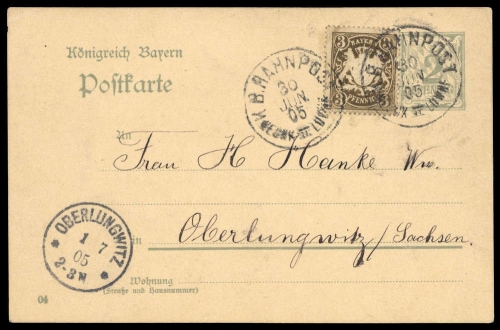 Königreich Bayern
Postkarte
K.B.BAHNPOST
30
JUN
05
3
BAYERN
3
3
PFENNIG
3
BAHNPOST
30
JUN
05
2
An
Frau H Hanke Ww.
in
Oberlungwitz/Sachsen.
OBERLUNGWITZ
1 7
05
2-3N
Wohnung
(Straße und Hausnummer)
04